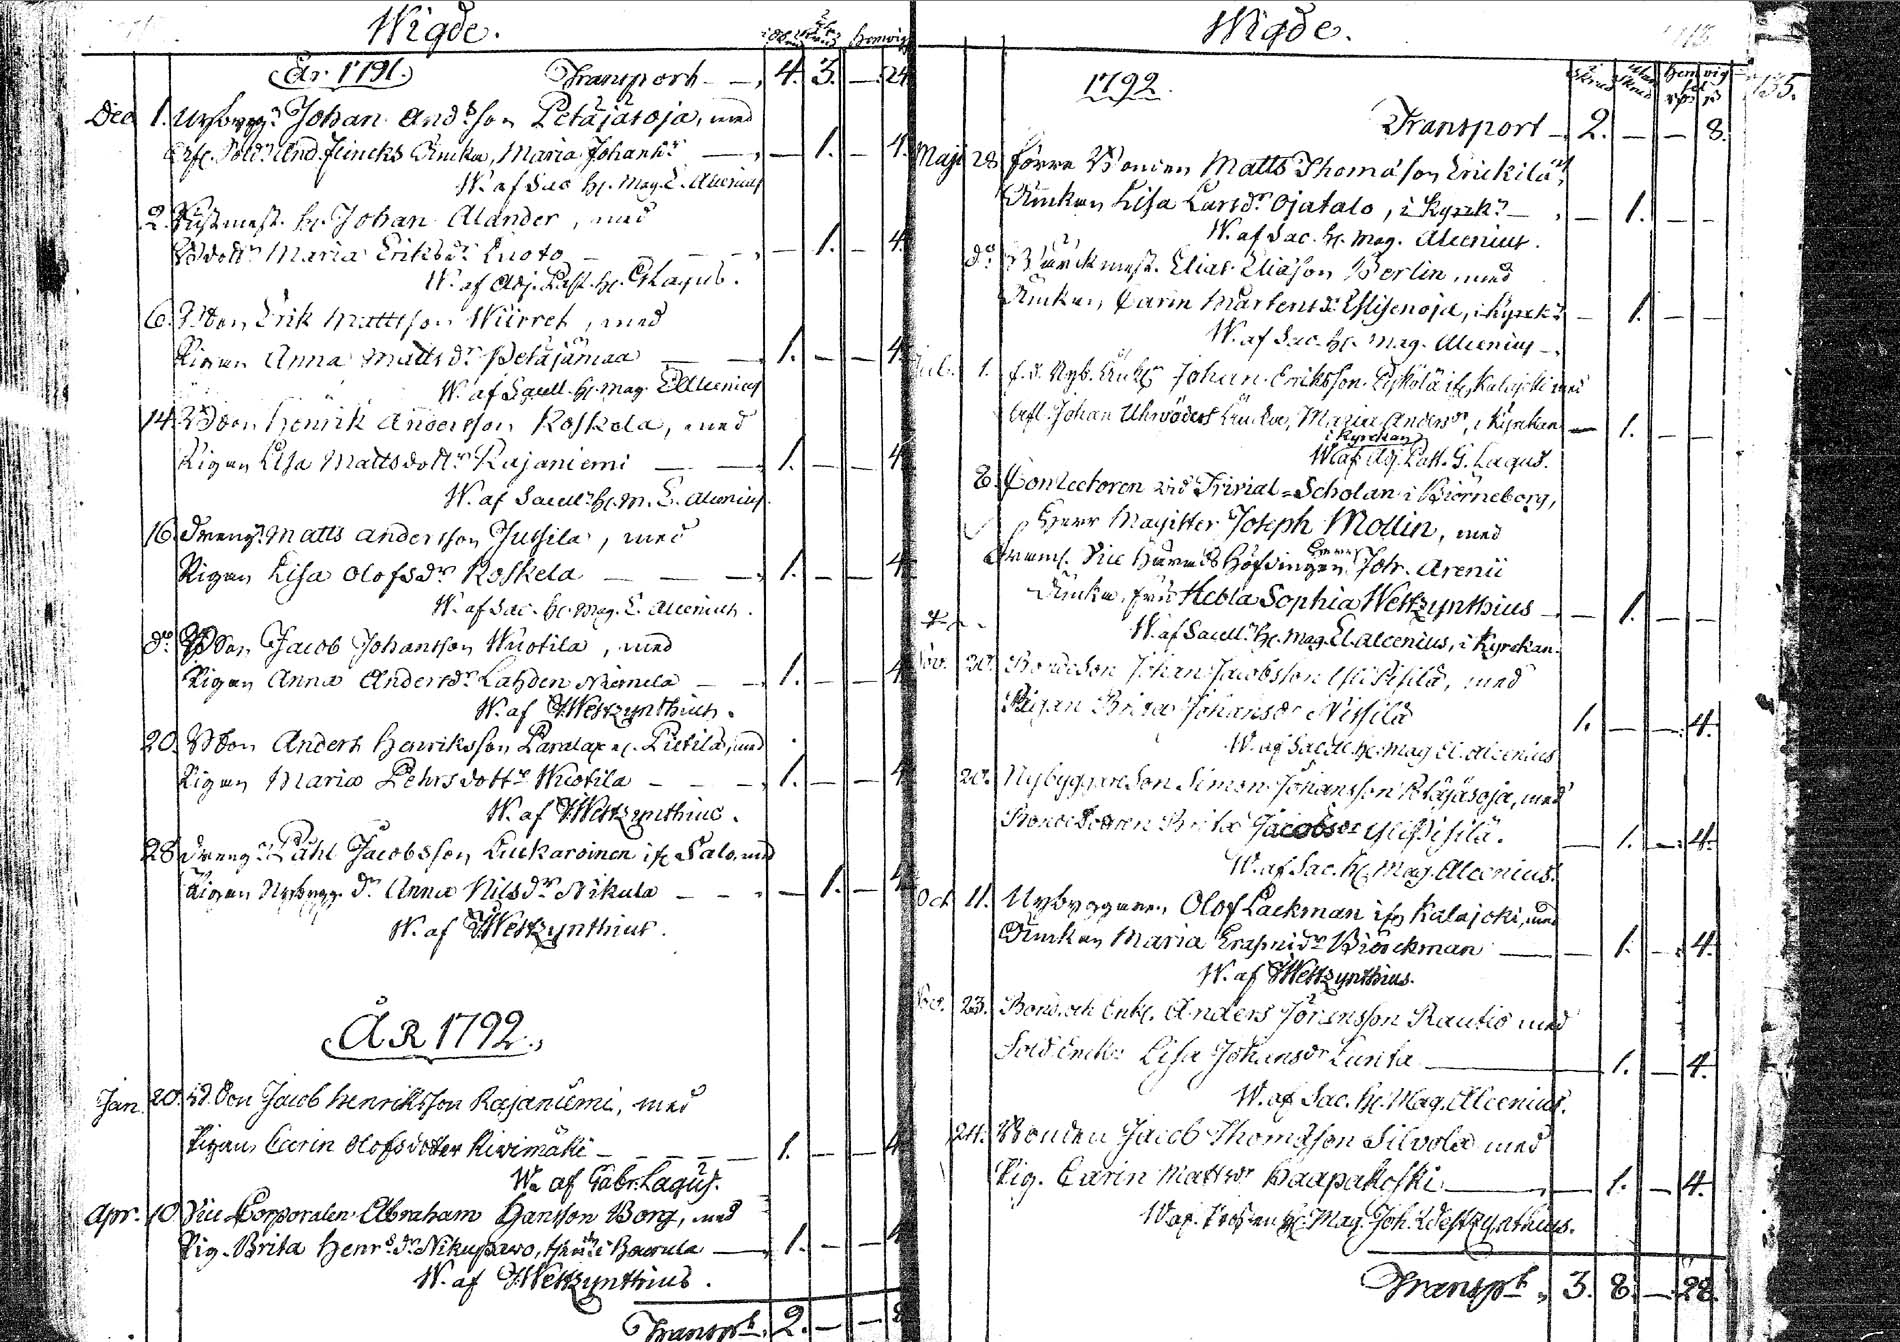 Wigde.
År 1791. Transport 4. 3. — 24
Dec. 1. Nybygg: Johan And:son Petäjäsoja, med
Sold: And. Flincks Enka, Maria Johansd:r — 1. — 4.
W. af Sac. H. Mag. E. Alcenius
2. H. Johan Alander, med
Maria Eriksd:r Luoto — 1. — 4.
W. af Adj. Past. H. G. Lagus.
6. Bdson Erik Mattsson Wiirret, med
Pigan Anna Mattsd:r Petäjämaa — 1. — — 4
W. af Sacell. H. Mag. E. Alcenius
14. Bdson Henrik Andersson Koskela, med
Pigan Lisa Mattsdott:r Rajaniemi — 1. — — 4
W. af Sacell: H. M. E. Alcenius.
16. Dreng: Matts Andersson Jussila, med
Pigan Lisa Olofsd:r Koskela — — — 1. — — 4
W. af Sac. H. Mag. E. Alcenius.
d:o Bdson Jacob Johansson Wuotila, med
Pigan Anna Andersd:r Lahden Niemelä — 1. — — 4
W. af J. Westzynthius.
20. Bdson Anders Henriksson Pietilä, med
Pigan Maria Pehrsdott:r Wuotila — 1. — — 4
W. af J. Westzynthius.
28. Dreng: Påhl Jacobsson Luckaroinen if. Salo, med
Pigan Nybygg. D:r Anna Nilsd:r Nikula — — 1. — 4
W. af J. Westzynthius.
ÅR 1792.
Jan. 20. Bdson Jacob Henriksson Rajaniemi, med
Pigan Carin Olofsdotter Kivimäki — 1. — — 4
W. af Gabr. Lagus.
Apr. 10. Vice Corporalen Abraham Hansson Borg, med
Pig. Brita Henrsd:r Nikupawo, — 1. — — 4
W. af J. Westzynthius.
Transp:t 2. — — 8
Wigde.
135.
1792.
Transport — 2. — — 8.
Maji 28. förre Bonden Matts Thomasson Erickilä,
Enkan Lisa Larsd:r Ojatalo, i Kyrk: — 1. — —
W. af Sac. H. Mag. Alcenius.
d:o Murckmest. Elias Eliasson Berlin, med
Enkan Carin Mårtensd:r Ylisenoja, i Kyrk: — 1. — —
W. af Sac. H. Mag. Alcenius
Jul. 1. f. d. Nyb. Enkl. Johan Eriksson if. Kalajoki med
Johan Enka, Maria Andersd:r, i Kyrkan — 1. — —
i Kyrckan
W. af Adj. Past. G. Lagus.
8. Conrectoren vid Trivial-Scholan i Biörneborg,
Herr Magister Joseph Mollin, med
Vice Häradshöfdingen Herr Joh. Arenii
Enka, Fru Hebla Sophia Westzynthius — 1. — —
W. af Sacell: H. Mag. El. Alcenius, i Kyrckan.
Nov. 20. Bondeson Johan Jacobsson Ylipisilä, med
Pigan Brita Johansdr Nissilä 1. — — 4.
W. af Sacell. H. Mag. El. Alcenius
20. Nybyggareson Simon Johansson Petäjäsoja, med
Bondedottren Brita Jacobsdr Ylipisilä. — 1. — 4.
W. af Sac. H. Mag. Alcenius.
Oct. 11. Nybyggaren Olof Lackman ifrån Kalajoki, med
Enkan Maria Erasmid:r Biörckman — 1. — 4.
W. af J. Westzynthius.
23. Bond. och Enkl. Anders Jöransson Rautio med
Sold. Enck: Lisa Johansdr Lunta — 1. — 4.
W. af Sac. H. Mag. Alcenius.
24. Bonden Jacob Thomasson Silvola med
Pig. Carin Mattsdr Haapakoski — 1. — 4.
W. af Prosten H. Mag. Joh. Westzynthius.
Transp:t 3. 8. — 28.